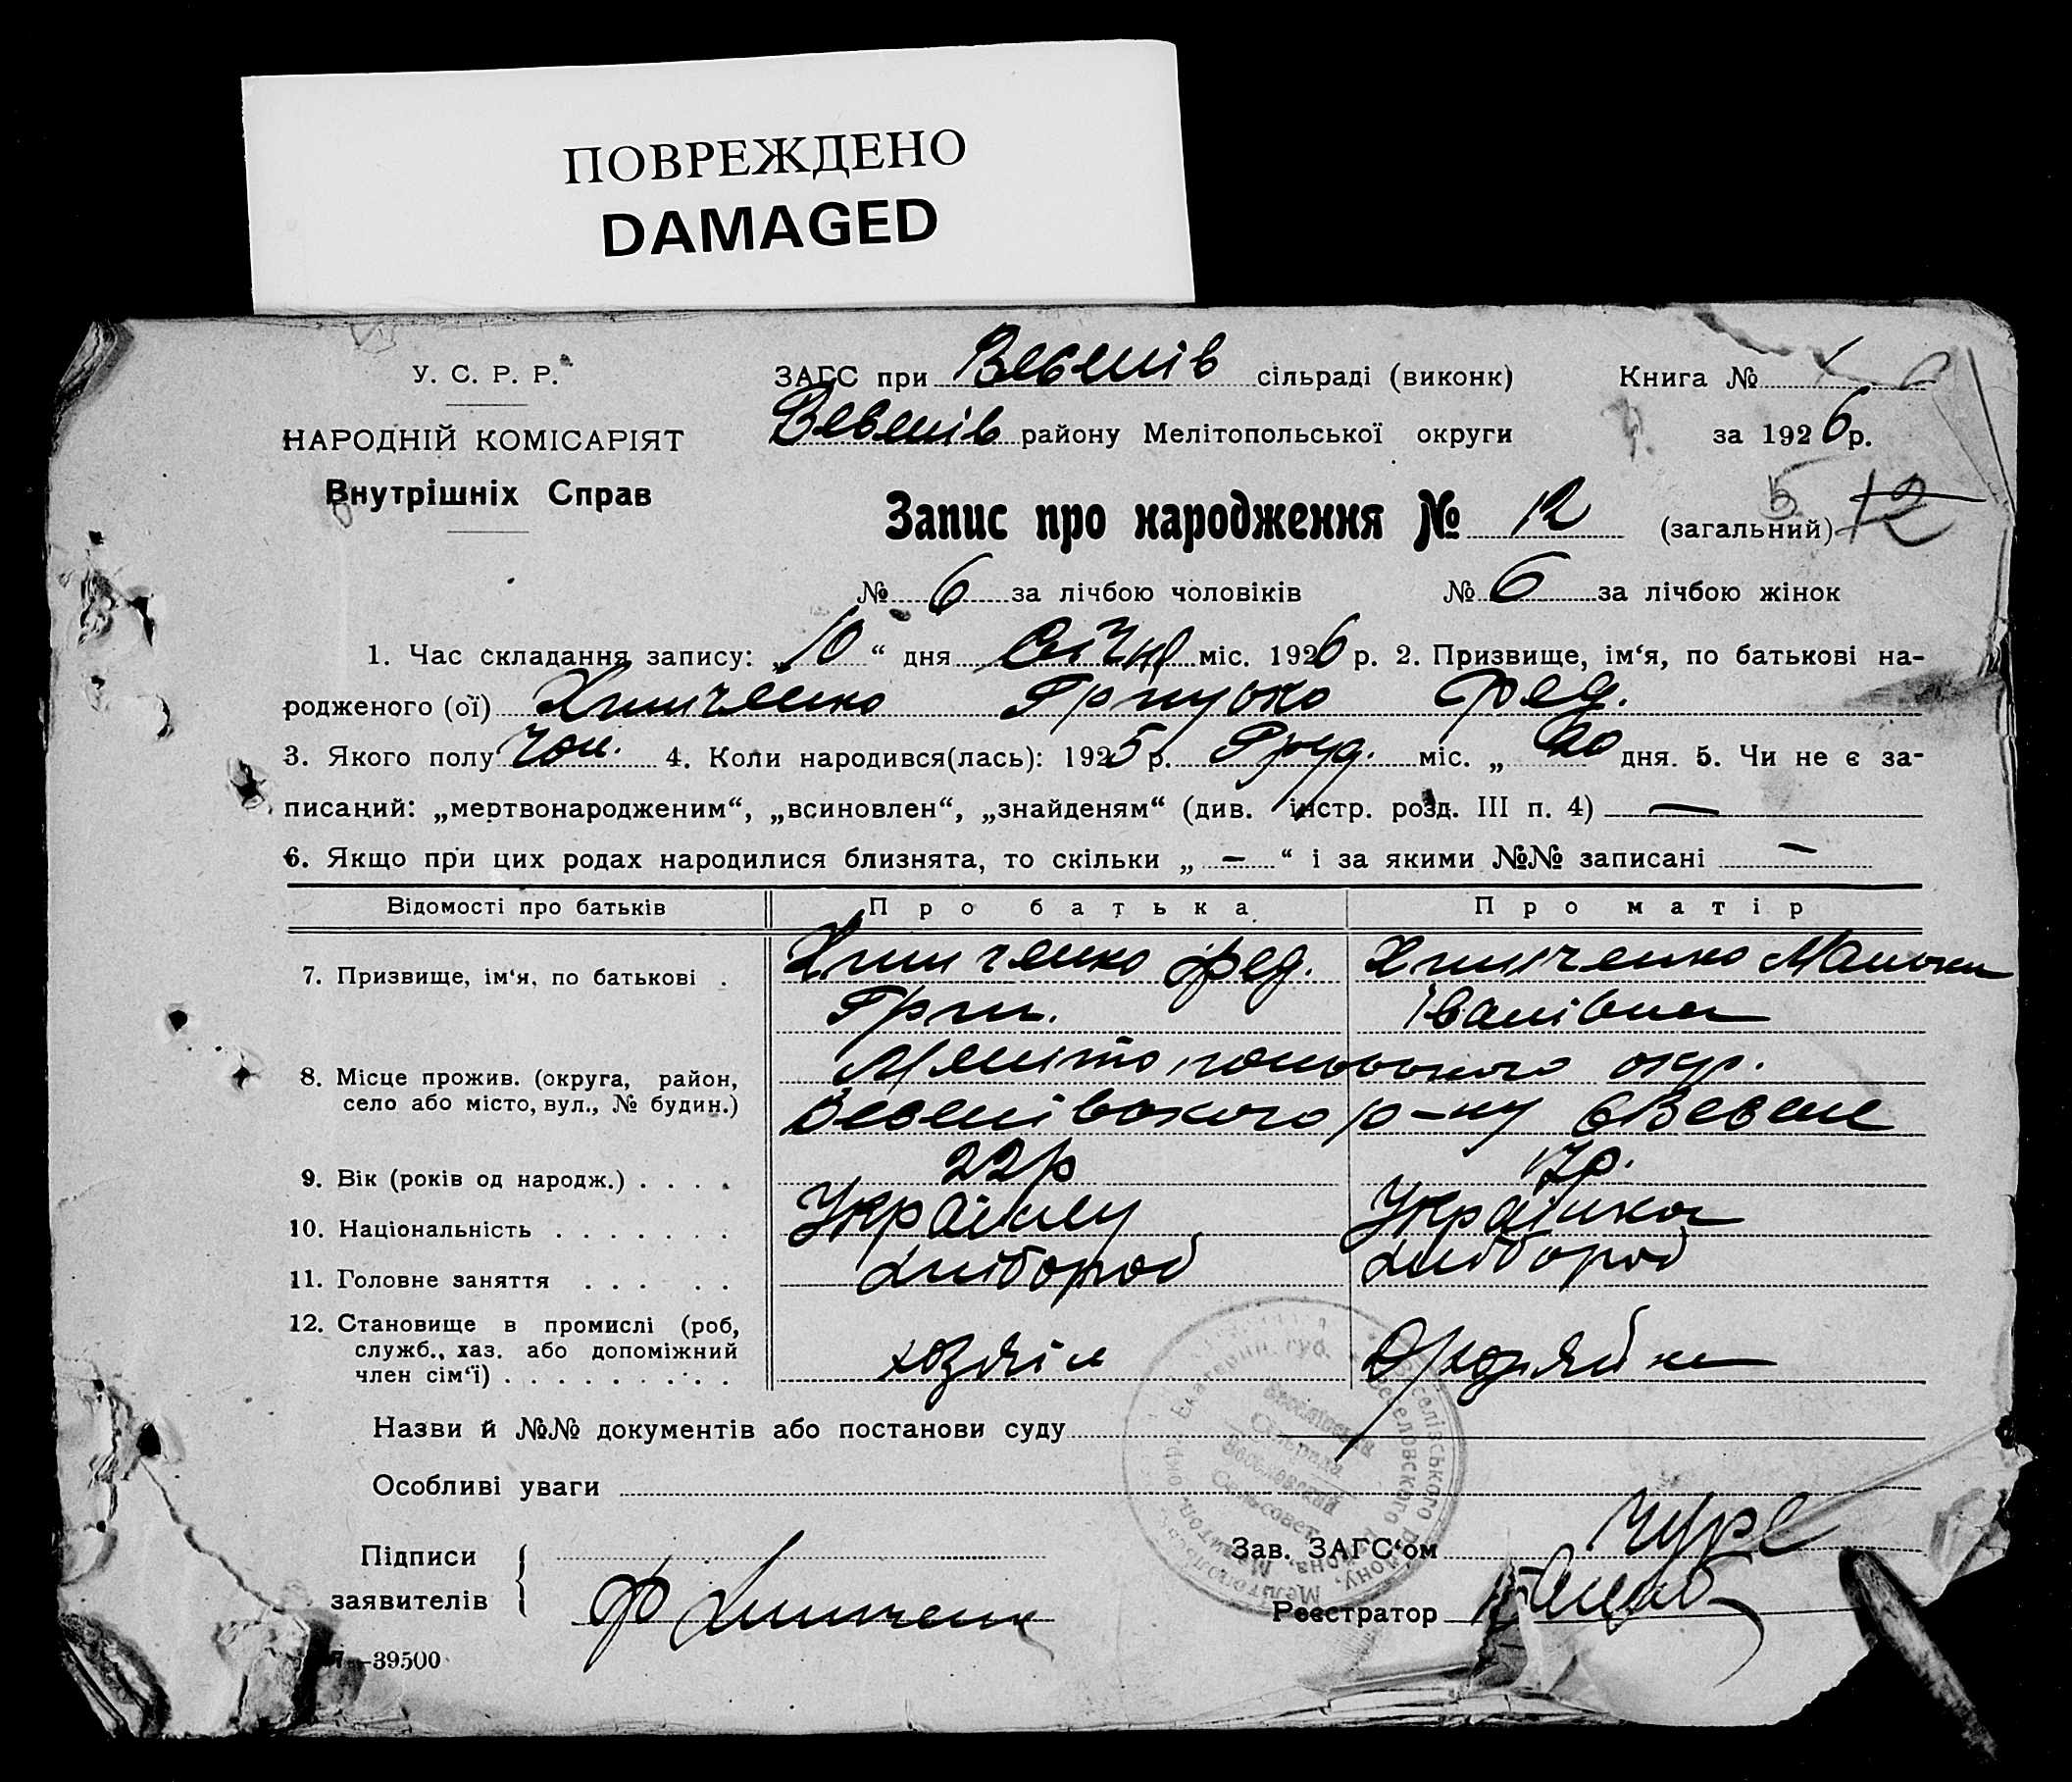 ПОВРЕЖДЕНО
DAMAGED
У. С. Р. Р.
НАРОДНІЙ КОМІСАРІЯТ
Внутрішніх Справ
ЗАГС при Веселів сільраді (виконк)
Книга №
Веселів району Мелітопольської округи
за 1926 р.
Запис про народження № 12 (загальний) 12
№ 6 за лічбою чоловіків № 6 за лічбою жінок
1. Час складання запису: „10“ дня Січня міс. 1926 р. 2. Призвище, ім‘я, по батькові на-
родженого (ої) Хниченко Грицько Фед.
3. Якого полу чол. 4. Коли народився(лась): 1925 р. Груд. міс. „ 20 дня. 5. Чи не є за-
писаний: „мертвонародженим“, „всиновлен“, „знайденям“ (див. інстр. розд. III п. 4) —
6. Якщо при цих родах народилися близнята, то скільки „ — “ і за якими №№ записані —
Відомості про батьків Про батька Про матір
7. Призвище, ім‘я, по батькові . Хниченко Фед. Хниченко
Гри. Іванівна
8. Місце прожив. (округа, район, Мелітопольського окр.
село або місто, вул., № будин.) Веселівського р-ну с Весел
9. Вік (років од народж.) . . . . 22 р 17 р.
10. Національність . . . . . . . Українец Українка
11. Головне заняття . . . . . Хлібороб Хлібороб
12. Становище в промислі (роб,
служб., хаз. або допоміжний
член сім‘ї) . . . . . . . . . хозяін
Назви й №№ документів або постанови суду
Особливі уваги
Підписи
заявителів
Ф Хниченк
Зав. ЗАГС‘ом
Реєстратор
Екатерин. губ.
Веселівська
Сельрада
Веселовский
Сельсовет
7—39500